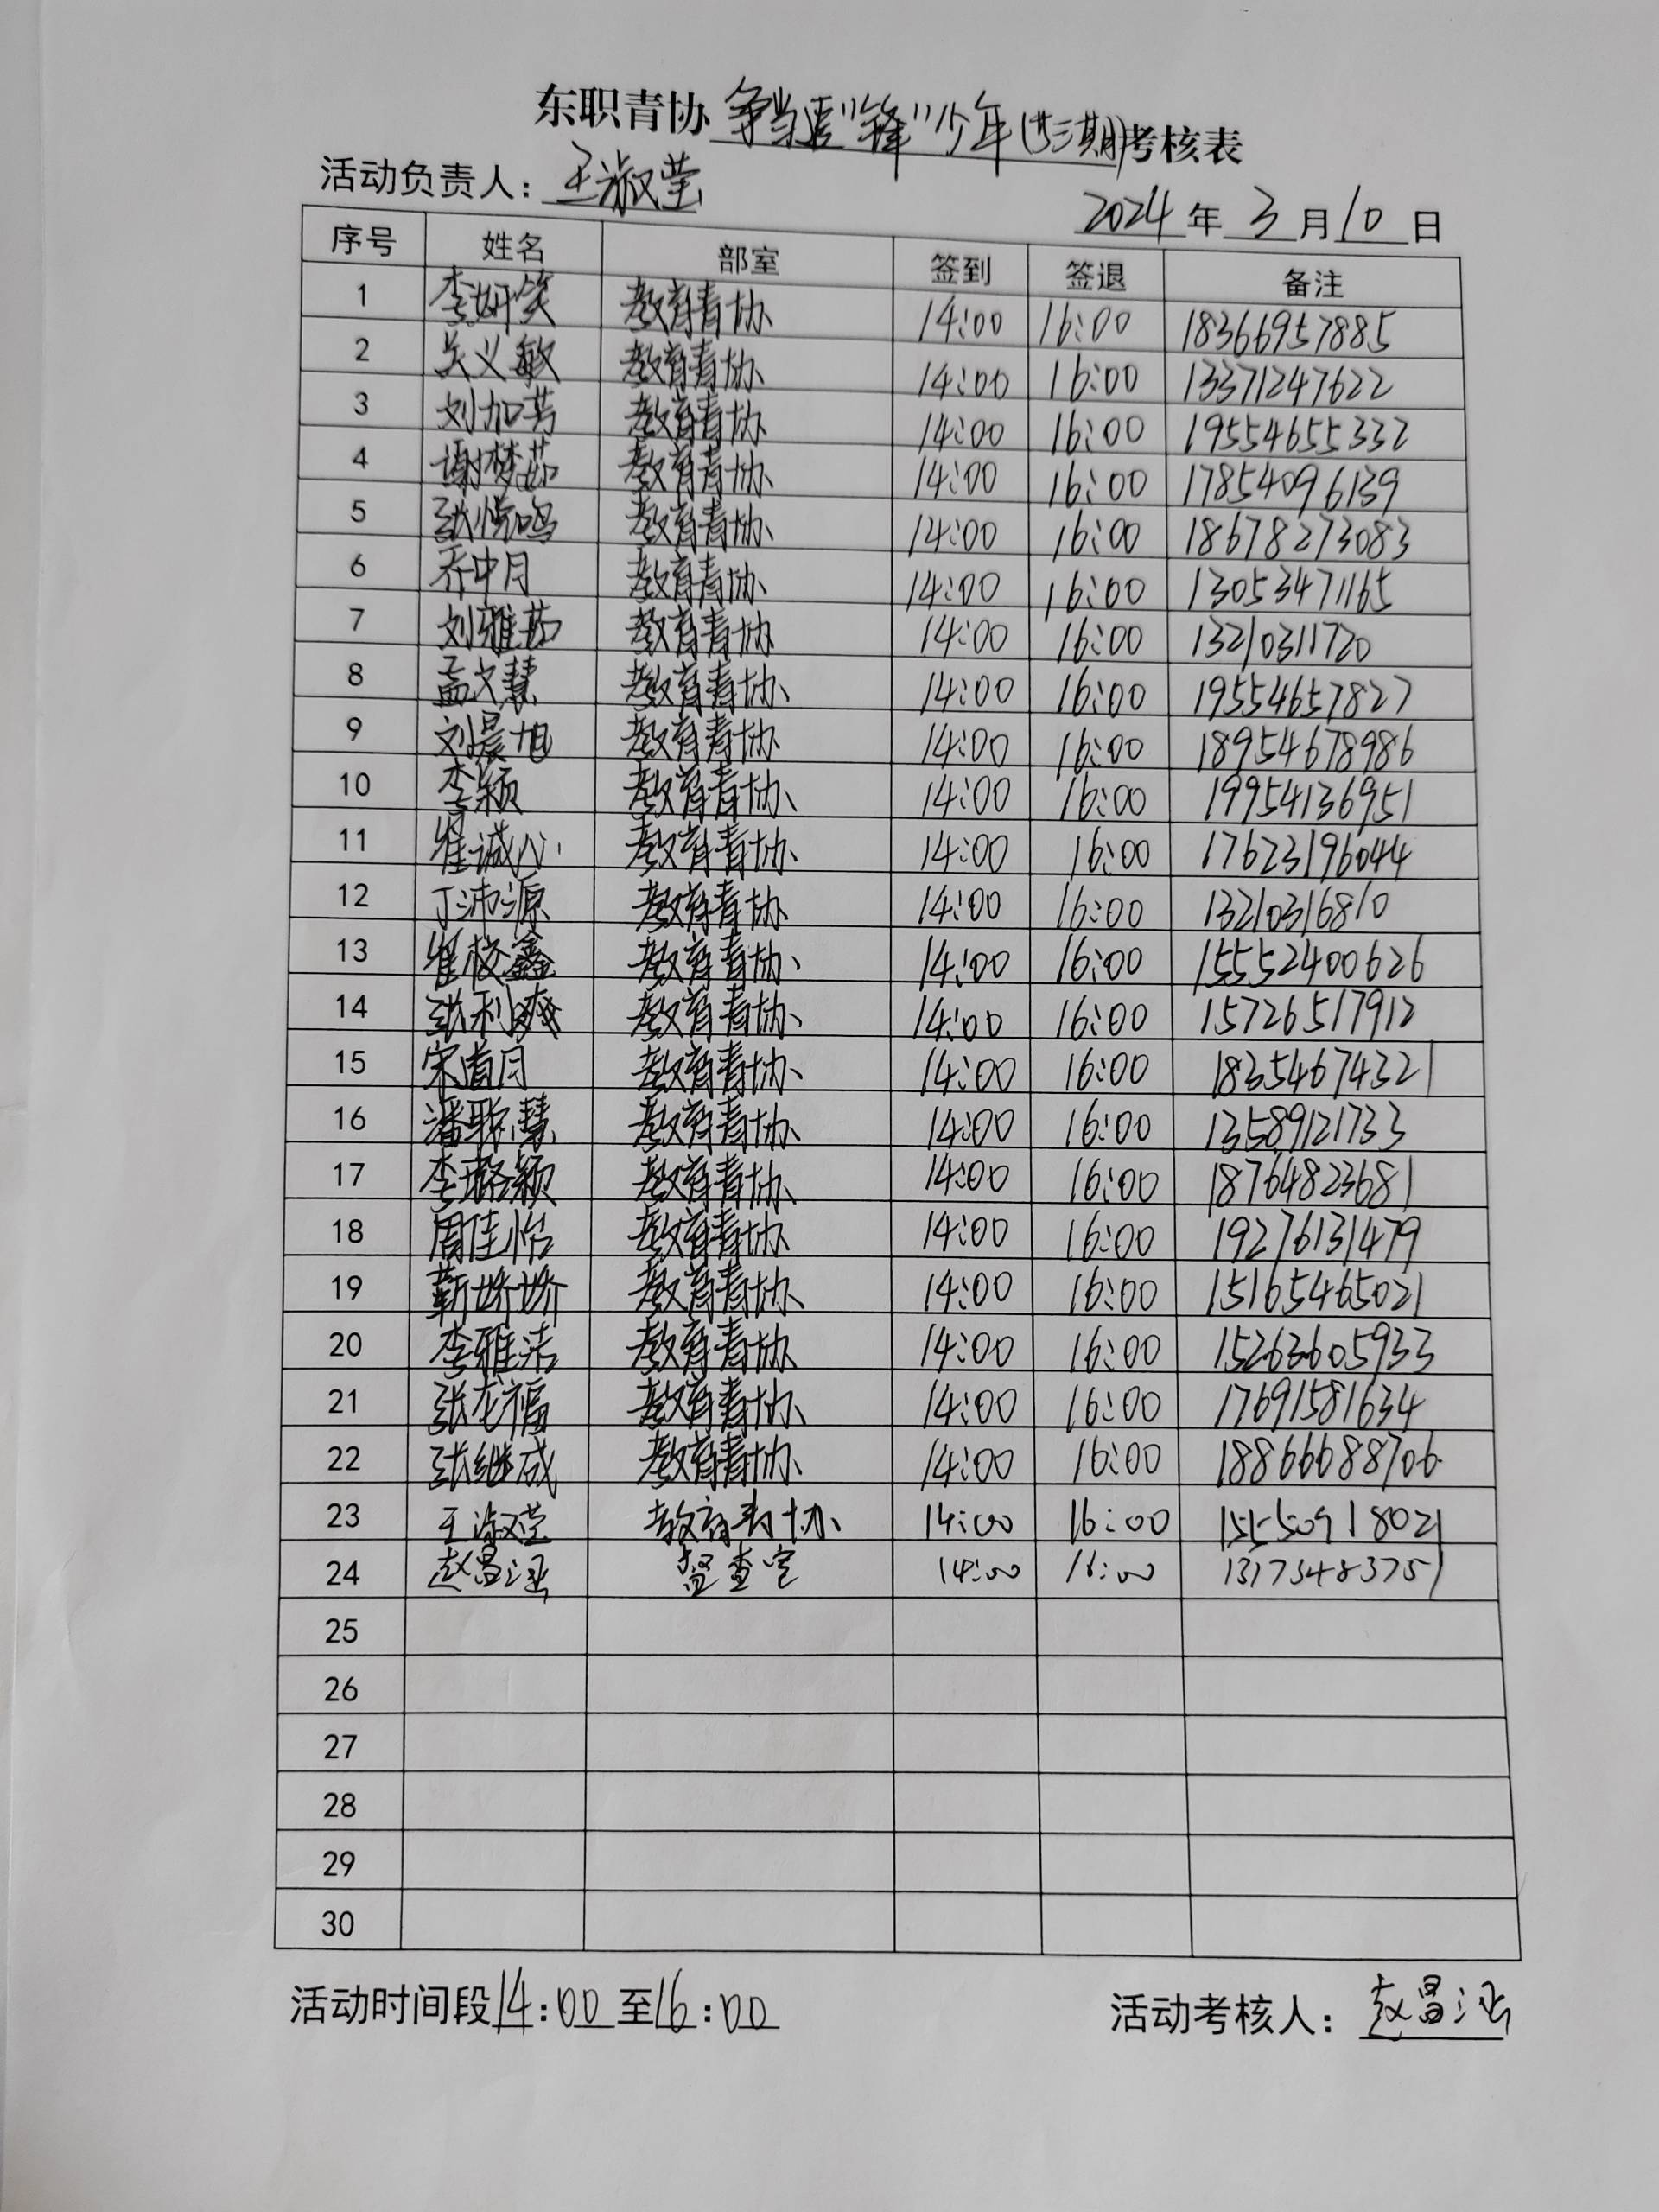 东职青协争当追“锋”少年(廿三期)考核表
活动负责人：王淑莹
2024年3月10日
序号 姓名 部室 签到 签退 备注
1 李妍笑 教育青协 14:00 16:00 18366957885
2 关义敏 教育青协 14:00 16:00 13371247622
3 刘加芳 教育青协 14:00 16:00 19554655332
4 谢梦茹 教育青协 14:00 16:00 17854096139
5 张悦鸣 教育青协 14:00 16:00 18678273083
6 乔中月 教育青协 14:00 16:00 13053471165
7 刘雅茹 教育青协 14:00 16:00 13210311720
8 孟文慧 教育青协 14:00 16:00 19554657827
9 刘晨旭 教育青协 14:00 16:00 18954678986
10 李颖 教育青协 14:00 16:00 19954136951
11 崔诚心 教育青协 14:00 16:00 17623196044
12 丁沛源 教育青协 14:00 16:00 13210316810
13 崔校鑫 教育青协 14:00 16:00 15552400626
14 张利爽 教育青协 14:00 16:00 15726517912
15 宋道月 教育青协 14:00 16:00 18354674321
16 潘聪慧 教育青协 14:00 16:00 13589121733
17 李璐颖 教育青协 14:00 16:00 18764823681
18 周佳怡 教育青协 14:00 16:00 19276131479
19 靳娇娇 教育青协 14:00 16:00 15165465021
20 李雅洁 教育青协 14:00 16:00 15263605933
21 张龙福 教育青协 14:00 16:00 17691581634
22 张继成 教育青协 14:00 16:00 18866688706
23 王淑莹 教育青协 14:00 16:00 15550918021
24 赵昌涵 督查室 14:00 16:00 13173483751
25
26
27
28
29
30
活动时间段14:00至16:00
活动考核人：赵昌涵